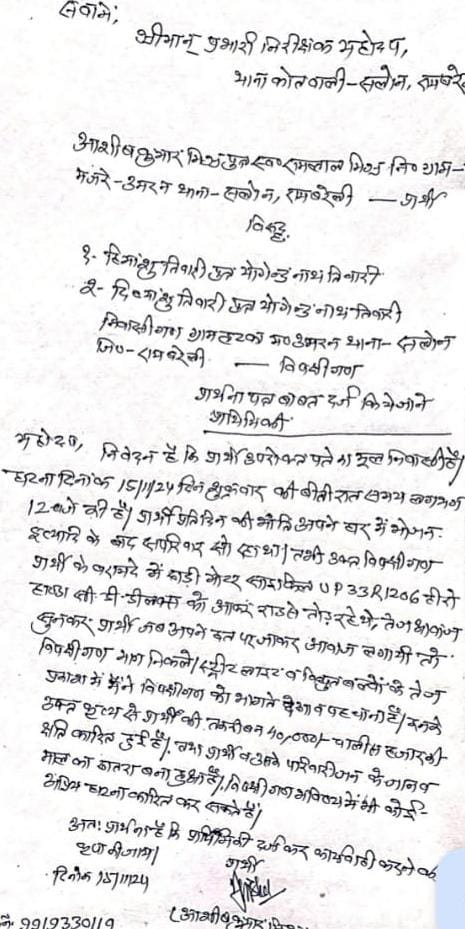 सेवामें,
श्रीमान् प्रभारी निरीक्षक महोदय,
थाना कोतवाली-सलोन, रायबरे
आशीष कुमार मिश्र पुत्र स्व० रामलाल मिश्र नि० ग्राम-
मजरे-उमरन थाना-सलोन, रायबरेली — प्रार्थी
विरुद्ध,
१- हिमांशु तिवारी पुत्र योगेन्द्र नाथ तिवारी
२- दिव्यांशु तिवारी पुत्र योगेन्द्र नाथ तिवारी
निवासीगण ग्राम म० उमरन थाना-सलोन
जि०-रायबरेली — विपक्षीगण
प्रार्थना पत्र बाबत दर्ज किये जाने
प्राथमिकी
महोदय, निवेदन है कि प्रार्थी उपरोक्त पते का मूल निवासी है।
घटना दिनांक 15/11/24 दिन शुक्रवार की बीती रात समय लगभग
12 बजे की है। प्रार्थी प्रतिदिन की भाँति अपने घर में भोजन
इत्यादि के बाद सपरिवार सो रहा था। तभी उक्त विपक्षीगण
प्रार्थी के बरामदे में खड़ी मोटर साइकिल UP33R1206 हीरो
हाण्डा सी.डी. डीलक्स को आकर तोड़ रहे थे, तेज आवाज
सुनकर प्रार्थी जब अपने छत पर जाकर आवाज लगायी तो
विपक्षीगण भाग निकले। स्ट्रीट लाइट व विद्युत बल्बों के तेज
प्रकाश में मैंने विपक्षीगण को भागते देखा व पहचाना है। इनके
उक्त कृत्य से प्रार्थी की तकरीबन 40,000/- चालीस हजार की
क्षति कारित हुई है। तथा प्रार्थी व उसके परिवारीजन के जान व
माल का खतरा बना हुआ है। विपक्षीगण भविष्य में भी कोई-
अप्रिय घटना कारित कर सकते हैं।
अतः प्रार्थना है कि प्राथमिकी दर्ज कर कार्यवाही करने की
कृपा की जाय।
प्रार्थी
दिनांक 15/11/24
(आशीष कुमार मिश्र
9919330119